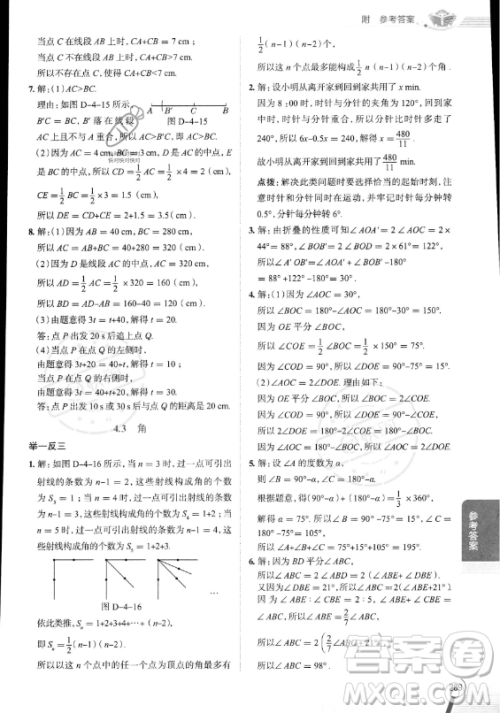 附 参考答案
当点 C 在线段 AB 上时，CA+CB=7 cm；
当点 C 不在线段 AB 上时，CA+CB>7 cm；
所以不存在点 C，使得 CA+CB=5 cm.
7. 解：(1)AC>BC.
理由：如图 D-4-15 所示，
B′C = BC，B′ 落在线段
图 D-4-15
AC 上且不与 A 重合，所以 AC>BC.
(2)因为 AC=4 cm，BC=3 cm，D 是 AC 的中点，
E 是 BC 的中点，所以 CD=1/2 AC=1/2 ×4=2（cm），
CE=1/2 BC=1/2 ×3=1.5（cm）.
所以 DE=CD+CE=2+1.5=3.5（cm）.
8. 解：(1)因为 AB=40 cm，BC=280 cm，
所以 AC=AB+BC=40+280=320（cm）.
(2)因为 D 是线段 AC 的中点，AC=320 cm，
所以 AD=1/2 AC=1/2 ×320=160（cm）.
所以 BD=AD-AB=160-40=120（cm）.
(3)由题意得 3t=t+40，解得 t=20；
答：点 P 出发 20 s 后追上点 Q.
(4)当点 P 在点 Q 的左侧时，
由题意得 3t+20=t+40，解得 t=10；
当点 P 在点 Q 的右侧时，
由题意得 3t=40+t+20，解得 t=30.
答：点 P 出发 10 s 或 30 s 后与点 Q 的距离是 20 cm.
4.3 角
举一反三
1. 解：如图 D-4-16，当 n=3 时，过一点可引出
射线的条数为 n-1=2，这些射线构成角的个数
为 Sₙ=1；当 n=4 时，过一点可引出射线的条数
为 n-1=3，这些射线构成角的个数 Sₙ=1+2；当
n=5 时，过一点可引出射线的条数为 n-1=4，
这些射线构成角的个数 Sₙ=1+2+3.
…
图 D-4-16
依此类推，Sₙ=1+2+3+4+…+（n-2），
即 Sₙ=1/2（n-1）（n-2）.
所以以这 n 个点中的任意一点为顶点的角最多有
1/2（n-1）（n-2）个，
所以这 n 个点最多能构成 1/2 n（n-1）（n-2）个角.
2. 解：设小明从离开家到回到家共用了 x min.
因为 8：00 时，时针与分针的夹角为 120°，回
到家时，时针与分针重合，所以分针比时针多走了
240°，所以 6x-0.5x=240，解得 x=480/11.
故小明从离开家到回到家共用了 480/11 min.
点拨：解决此类问题时要选择恰当的起始时刻，注
意时针和分针同时在运动，并牢记时针每分钟转
0.5°，分针每分钟转 6°.
3. 解：由折叠的性质可知∠AOA′=2∠AOC=2×
44°=88°，∠BOB′=2∠BOD=2×61°=122°，
所以∠A′OB′=∠AOA′+∠BOB′-180°
=88°+122°-180°=30°.
4. 解：(1)因为∠AOC=30°，
所以∠BOC=180°-∠AOC=180°-30°=150°.
因为 OE 平分∠BOC，
所以∠COE=1/2∠BOC=1/2×150°=75°.
因为∠COD=90°，
所以∠DOE=∠COD-∠COE=90°-75°=15°.
(2)∠AOC=2∠DOE. 理由：因为 OE 平分∠BOC，
所以∠BOC=2∠COE.
所以∠AOC=180°-∠BOC=180°-2∠COE=
180°-2（90°-∠DOE）=2∠DOE.
5. 解：设∠A 的度数为 α，
则∠B=90°-α，∠C=180°-α.
根据题意，得（90°-α）+（180°-α）=1/3×360°，
解得 α=75°.
所以∠B=90°-75°=15°，
∠C=180°-75°=105°.
所以∠A+∠B+∠C=75°+15°+105°=195°.
6. 解：因为 BD 平分∠ABC，
所以∠ABC=2∠ABD=2（∠ABE+∠DBE）.
又因为∠DBE=21°，所以∠ABC=2（∠ABE+21°）.
因为∠ABE：∠CBE=2：5，∠ABE+∠CBE=
∠ABC，所以∠ABE=2/7∠ABC，
参考答案